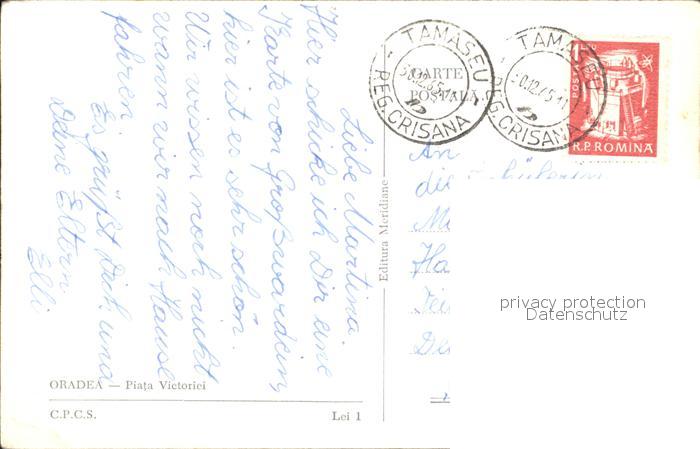 Liebe Martina.
Hier schicke ich Dir eine
Karte von Großwardein,
hier ist es sehr schön.
Wir wissen noch nicht
wann wir nach Hause
fahren.
Es grüßt Dich und
Deine Eltern
Elli
ORADEA — Piața Victoriei
C.P.C.S.
Lei 1
Editura Meridiane
CARTE
POSTALĂ
TAMASEU
REG. CRISANA
TAMASEU
30.12.65.11
REG. CRISANA
1 LEU
R.P.ROMINA
An
die Schülerin
privacy protection
Datenschutz